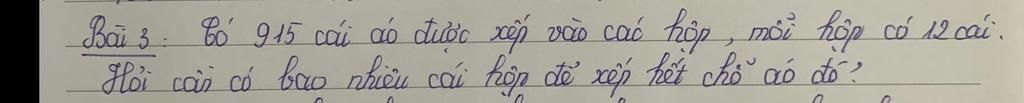 Bài 3: Có 915 cái áo được xếp vào các hộp, mỗi hộp có 12 cái.
Hỏi cần có bao nhiêu cái hộp để xếp hết chỗ áo đó?